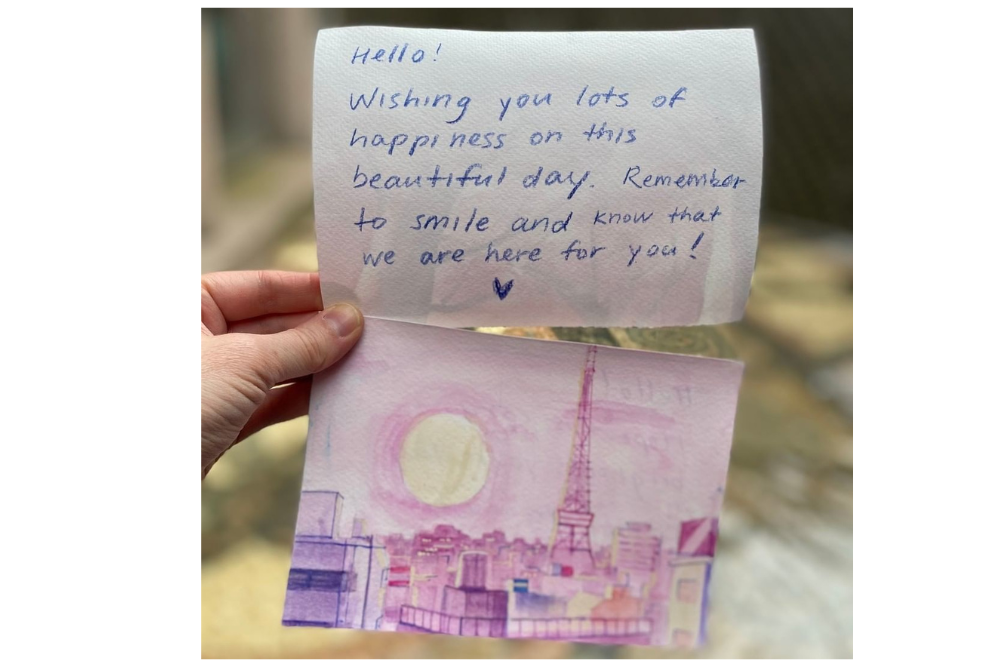 Hello!
Wishing you lots of
happiness on this
beautiful day. Remember
to smile and know that
we are here for you!
Hello!